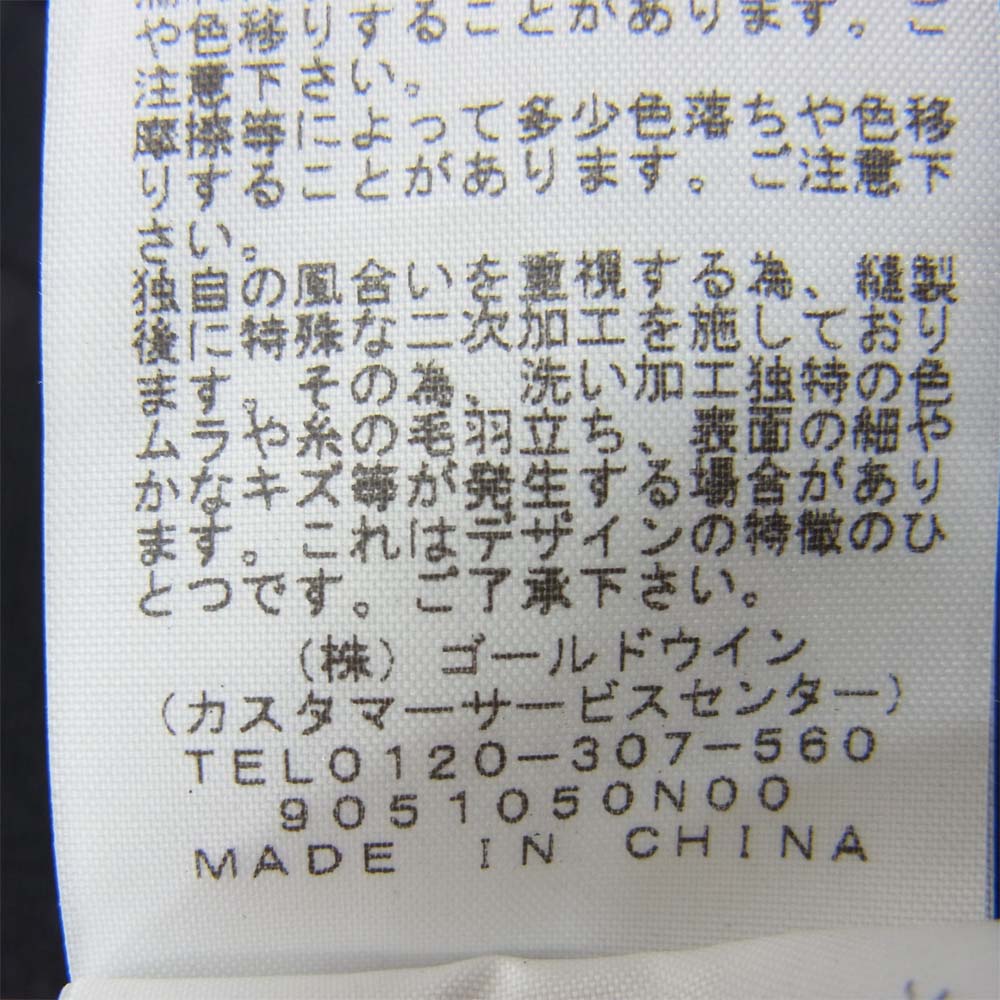 色移りすることがあります。ご
注意下さい。
摩擦等によって多少色落ちや色移
りすることがあります。ご注意下
さい。
独自の風合いを重視する為、縫製
後に特殊な二次加工を施しており
ます。その為、洗い加工独特の色
ムラや糸の毛羽立ち、表面の細や
かなキズ等が発生する場合があり
ます。これはデザインの特徴のひ
とつです。ご了承下さい。
(株)ゴールドウイン
(カスタマーサービスセンター)
TEL0120-307-560
9051050N00
MADE IN CHINA